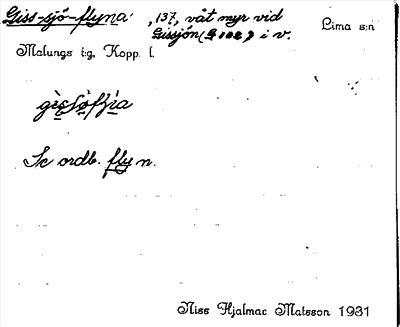 Giss-sjö-flyna, 137, våt myr vid Lima s:n
Gissjön (G 102) i v.
Malungs t:g, Kopp. l.
Se ordb. fly n.
Niss Hjalmar Matsson 1931